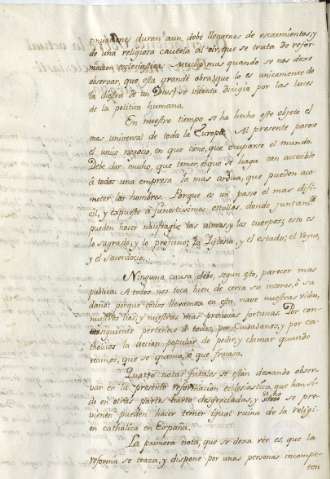 duran aun, debe llegarnos de escarmientos, y
de una religiosa cautela al oir, que se trata de refor-
macion eclesiastica. Mucho mas quando se nos deve
observar, que esta grande obra, que lo es unicamente de
la diestra de un Dios, se intenta dirigir por las luces
de la politica humana.
En nuestro tiempo se ha hecho este objeto el
mas universal de toda la Europa. Al presente parece
el unico negocio, en que tiene, que ocuparse el mundo.
Debe dar mucho, que temer, el que se haga tan accesible
á todos una empresa la mas ardua, que pueden aco-
meter los hombres. Porque es un paso el mas difi-
cil, y expuesto á funestisimos escollos, donde juntam.te
pueden hacer naufragio las almas, y los cuerpos, esto es
lo sagrado, y lo profano; la Iglesia, y el estado; el Reyno,
y el Sacerdocio.
Ninguna causa debe, segun esto, parecer mas
publica. A todos nos toca bien de cerca su acierto, ó su
daño: porque todos llevamos en esta nave nuestras vidas,
nuestras y nuestras mas preciosas fortunas. Por con-
siguiente pertenece á todos, por Ciudadanos, y por ca-
tholicos la accion popular de pedir, y clamar quando
veamos, que se quema, ó que fracasa.
Quatro notas fatales se estan dexando obser-
var en la presente reformacion eclesiastica, que han si-
do en otras partes harto desgraciadas, y si no se pre-
vienen pueden hacer temer igual ruina de la religi-
on catholica en España.
La primera nota, que se dexa ver es, que la
reforma se traza, y dispone por unas personas incompe-
ten